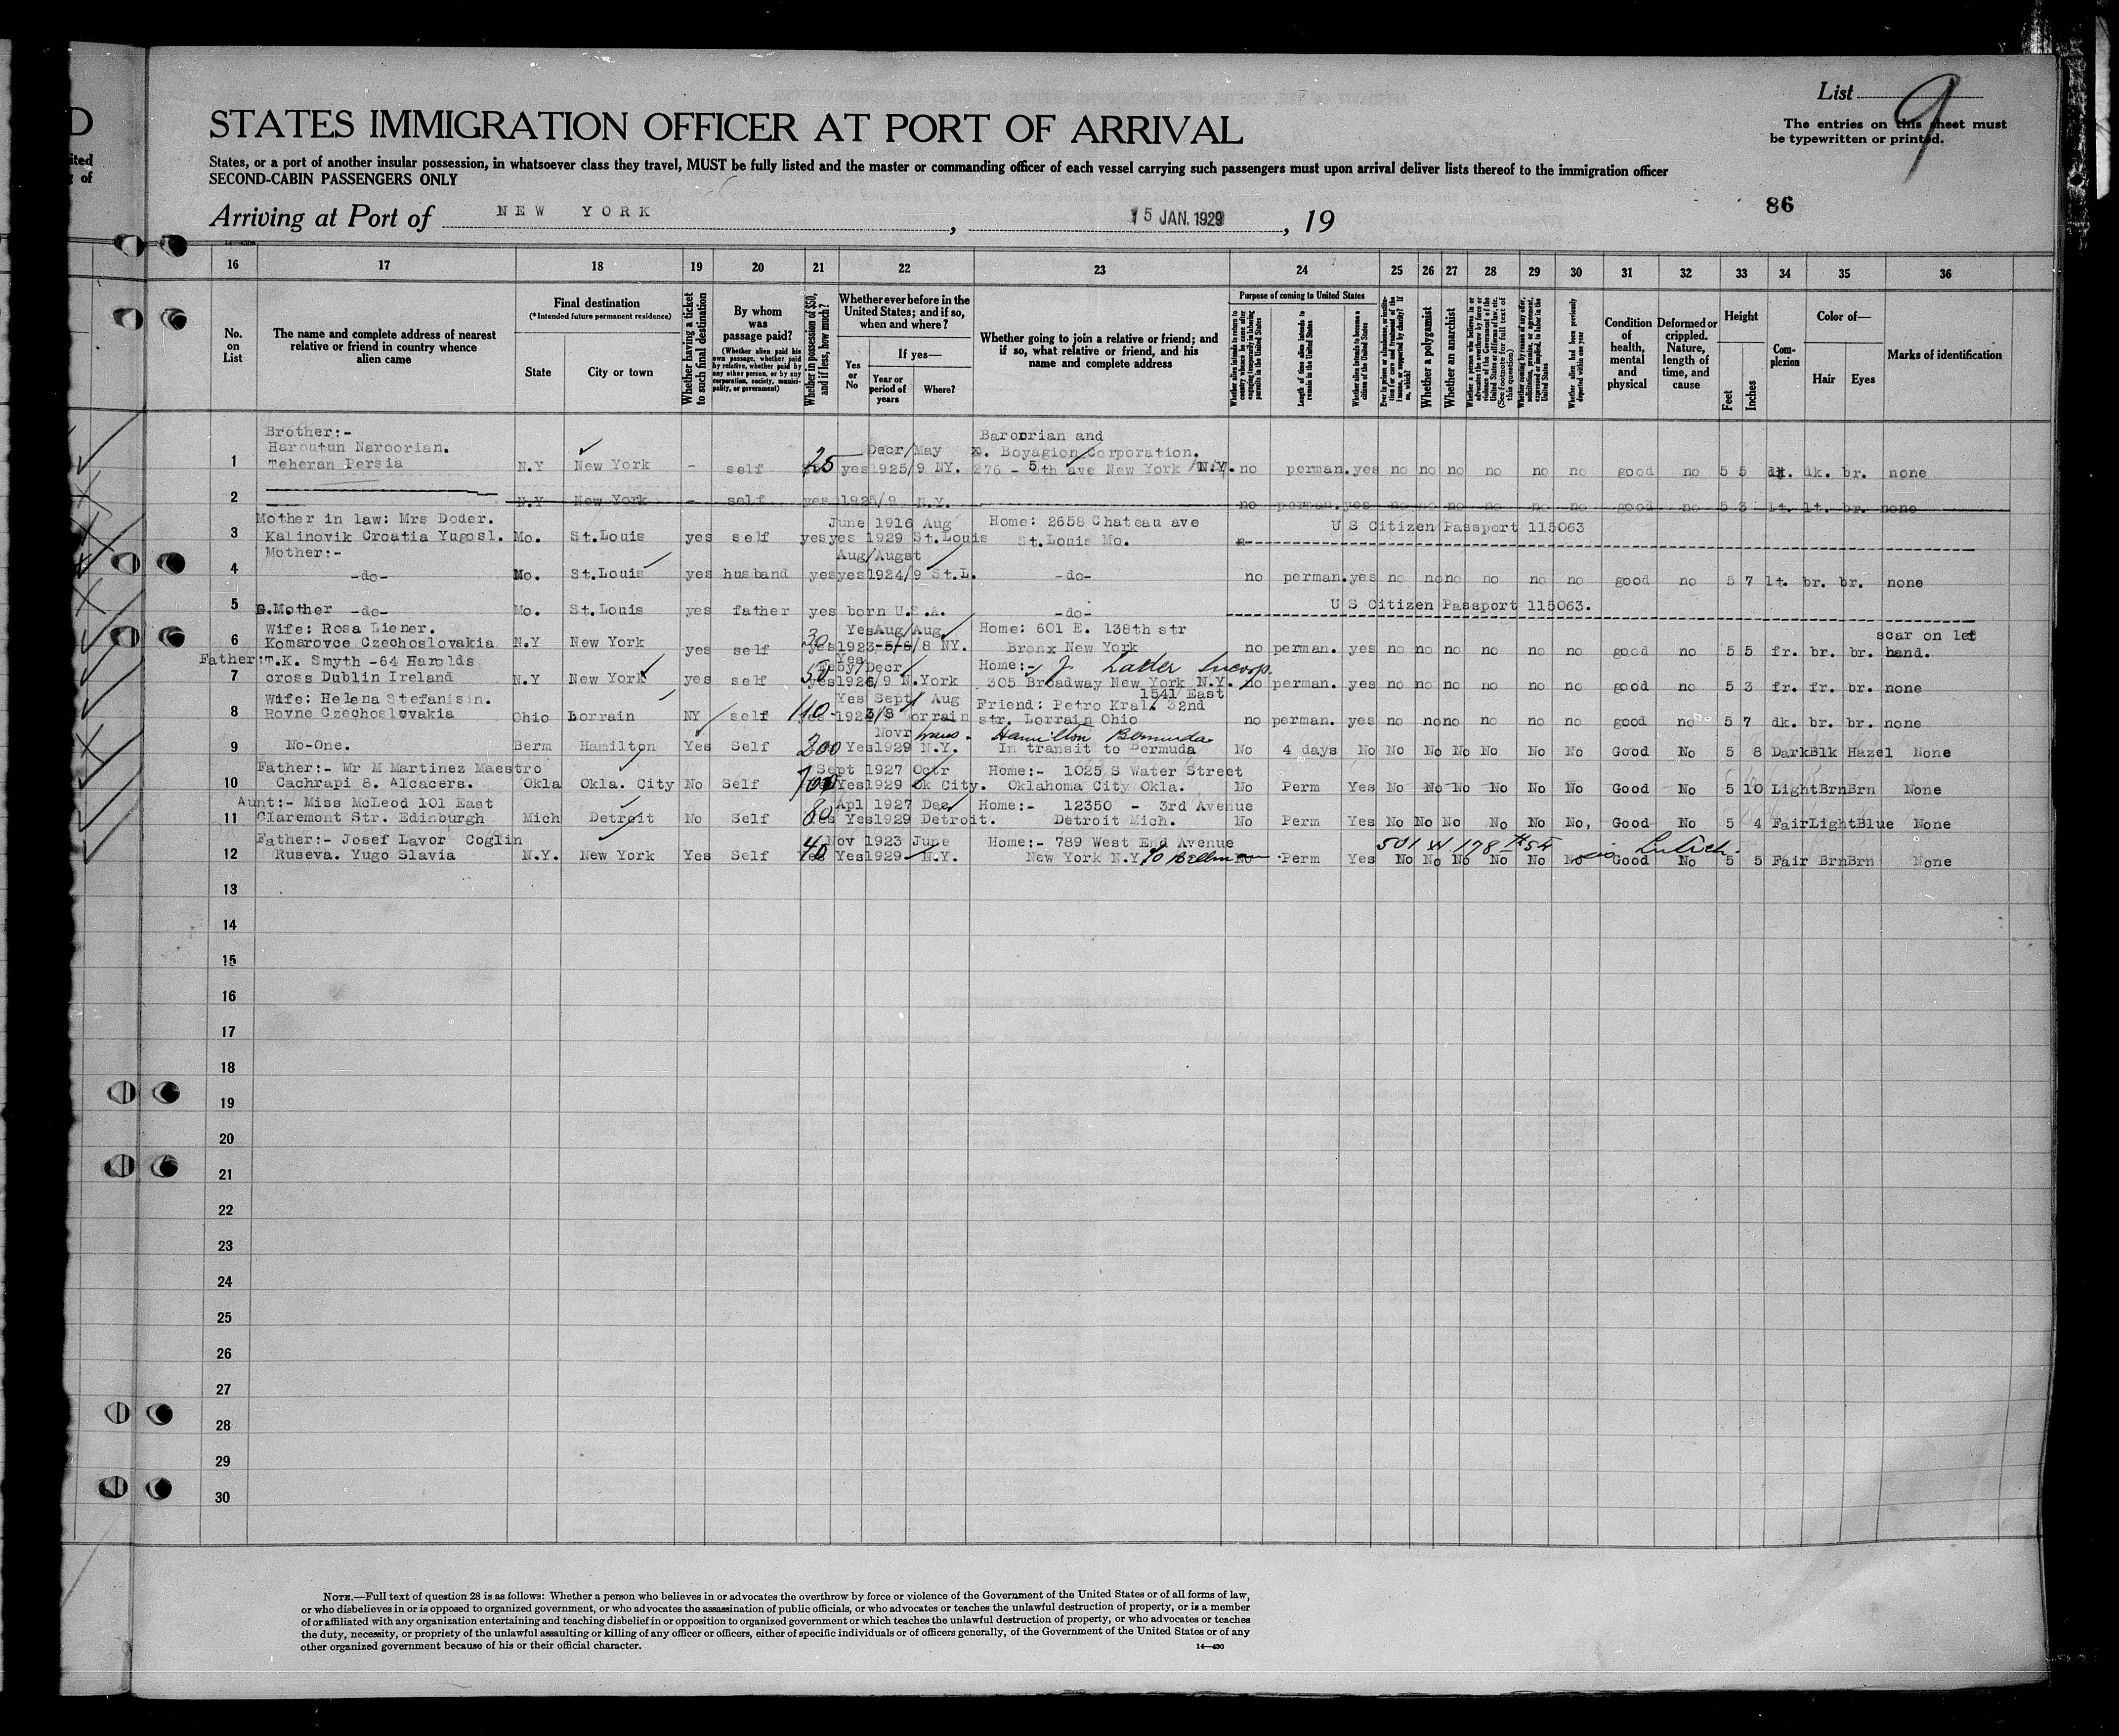 D
ited
of
List 9
The entries on this sheet must
be typewritten or printed.
STATES IMMIGRATION OFFICER AT PORT OF ARRIVAL
States, or a port of another insular possession, in whatsoever class they travel, MUST be fully listed and the master or commanding officer of each vessel carrying such passengers must upon arrival deliver lists thereof to the immigration officer
SECOND-CABIN PASSENGERS ONLY
86
Arriving at Port of NEW YORK, 15 JAN. 1929, 19
16 17 18 19 20 21 22 23 24 25 26 27 28 29 30 31 32 33 34 35 36
No. on List
The name and complete address of nearest relative or friend in country whence alien came
Final destination
(*Intended future permanent residence)
State
City or town
Whether having a ticket to such final destination
By whom was passage paid?
(Whether alien paid his own passage, whether paid by relative, whether paid by any other person, or by any corporation, society, municipality, or government)
Whether in possession of $50, and if less, how much?
Whether ever before in the United States; and if so, when and where?
Yes or No
If yes—
Year or period of years
Where?
Whether going to join a relative or friend; and if so, what relative or friend, and his name and complete address
Purpose of coming to United States
Whether alien intends to return to country whence he came after engaging temporarily in laboring pursuits in the United States
Length of time alien intends to remain in the United States
Whether alien intends to become a citizen of the United States
Ever in prison or almshouse, or institution for care and treatment of the insane, or supported by charity? If so, which?
Whether a polygamist
Whether an anarchist
Whether a person who believes in or advocates the overthrow by force or violence of the Government of the United States or all forms of law, etc. (See footnote for full text of this question)
Whether coming by reason of any offer, solicitation, promise, or agreement, expressed or implied, to labor in the United States
Whether alien had been previously deported within one year
Condition of health, mental and physical
Deformed or crippled. Nature, length of time, and cause
Height
Feet
Inches
Complexion
Color of—
Hair
Eyes
Marks of identification
Brother:- Baroorian and
Haroutun Naroorian. Decr/May Boyagion Corporation.
1 Teheran Persia N.Y New York - self 25 yes 1925/9 NY. 276 - 5th ave New York N.Y. no perman. yes no no no no no no good no 5 5 dk. dk. br. none
2 N.Y New York - self yes 1925/9 N.Y. no perman. yes no no no no no no good no 5 3 lt. lt. br. none
Mother in law: Mrs Doder. June 1916 Aug Home: 2658 Chateau ave U S Citizen Passport 115063
3 Kalinovik Croatia Yugosl. Mo. St.Louis yes self yes yes 1929 St.Louis St.Louis Mo.
Mother:- Aug/Augst
4 -do- Mo. St.Louis yes husband yes yes 1924/9 St.L. -do- no perman. yes no no no no no no good no 5 7 lt. br. br. none
5 G.Mother -do- Mo. St.Louis yes father yes born U.S.A. -do- U S Citizen Passport 115063.
Wife: Rosa Liener. Yes Aug/Aug Home: 601 E. 138th str scar on lef
6 Komarovce Czechoslovakia N.Y New York yes self 30 1923-5/8/8 NY. Bronx New York no perman. yes no no no no no no good no 5 5 fr. br. br. hand.
Father:T.K. Smyth -64 Harolds Yes Decr Home:- J. Latter Incorp.
7 cross Dublin Ireland N.Y New York yes self 50 1926/9 N.York 305 Broadway New York N.Y. no perman. yes no no no no no no good no 5 3 fr. fr. br. none
1541 East
Wife: Helena Stefanisin. Yes Sept/ Aug Friend: Petro Kral. 32nd
8 Rovne Czechoslovakia Ohio Lorrain NY self 110 Lorrain str. Lorrain Ohio no perman. yes no no no no no no good no 5 7 dk. br. br. none
Novr trans. Hamilton Bermuda
9 No-One. Berm Hamilton Yes Self 200 Yes 1929 N.Y. In transit to Bermuda No 4 days No No No No No No No Good No 5 8 Dark Blk Hazel None
Father:- Mr M Martinez Maestro Sept 1927 Octr Home:- 1025 S Water Street
10 Cachrapi 8. Alcacers. Okla Okla. City No Self Yes 1929 Ok City. Oklahoma City Okla. No Perm Yes No No No No No No Good No 5 10 Light Brn Brn None
Aunt:- Miss McLeod 101 East Apl 1927 Dec Home:- 12350 - 3rd Avenue
11 Claremont Str. Edinburgh Mich Detroit No Self 80 Yes 1929 Detroit. Detroit Mich. No Perm Yes No No No No No No, Good No 5 4 Fair Light Blue None
Father:- Josef Lavor Coglin Nov 1923 June Home:- 789 West End Avenue 501 W 178 #54
12 Ruseva. Yugo Slavia N.Y. New York Yes Self 40 Yes 1929 N.Y. New York N.Y. No Perm Yes No No No No No No Good No 5 5 Fair Brn Brn None
13
14
15
16
17
18
19
20
21
22
23
24
25
26
27
28
29
30
NOTE.—Full text of question 28 is as follows: Whether a person who believes in or advocates the overthrow by force or violence of the Government of the United States or of all forms of law,
or who disbelieves in or is opposed to organized government, or who advocates the assassination of public officials, or who advocates or teaches the unlawful destruction of property, or is a member
of or affiliated with any organization entertaining and teaching disbelief in or opposition to organized government or which teaches the unlawful destruction of property, or who advocates or teaches
the duty, necessity, or propriety of the unlawful assaulting or killing of any officer or officers, either of specific individuals or of officers generally, of the Government of the United States or of any
other organized government because of his or their official character.
14—430